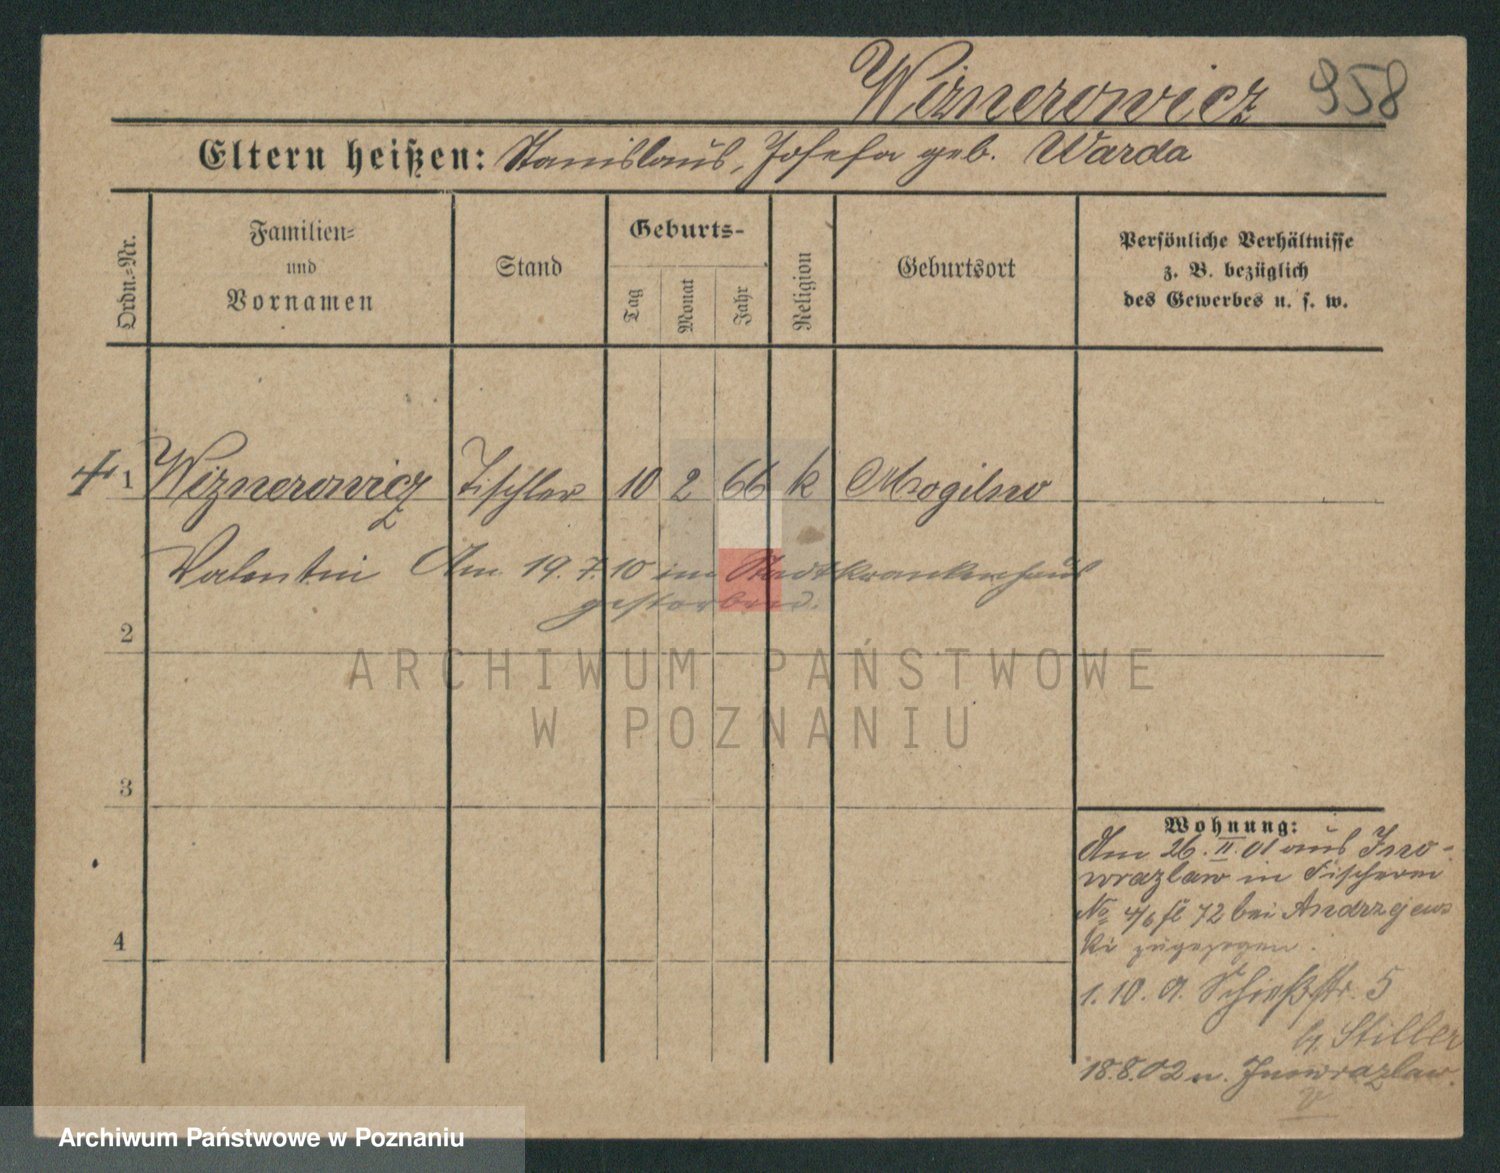 Wiznerowicz 958
Eltern heißen: Stanislaus, Josefa geb. Warda
Ordn.-Nr.
Familien-
und
Vornamen
Stand
Geburts-
Tag
Monat
Jahr
Religion
Geburtsort
Persönliche Verhältnisse
z. B. bezüglich
des Gewerbes u. s. w.
1 Wiznerowicz Tischler 10 2 66 k Mogilno
Valentin Am 19.7.10 im Stadtkrankenhaus
gestorben.
2
ARCHIWUM PAŃSTWOWE
W POZNANIU
3
4
Wohnung:
Am 26.II.01 aus Ino-
wrazlaw in Fischerei
No 4/6 72 bei Andrzejews
ki zugezogen.
1.10. Schießstr. 5
b. Stiller
18.8.02 n. Inowrazlaw.
Archiwum Państwowe w Poznaniu